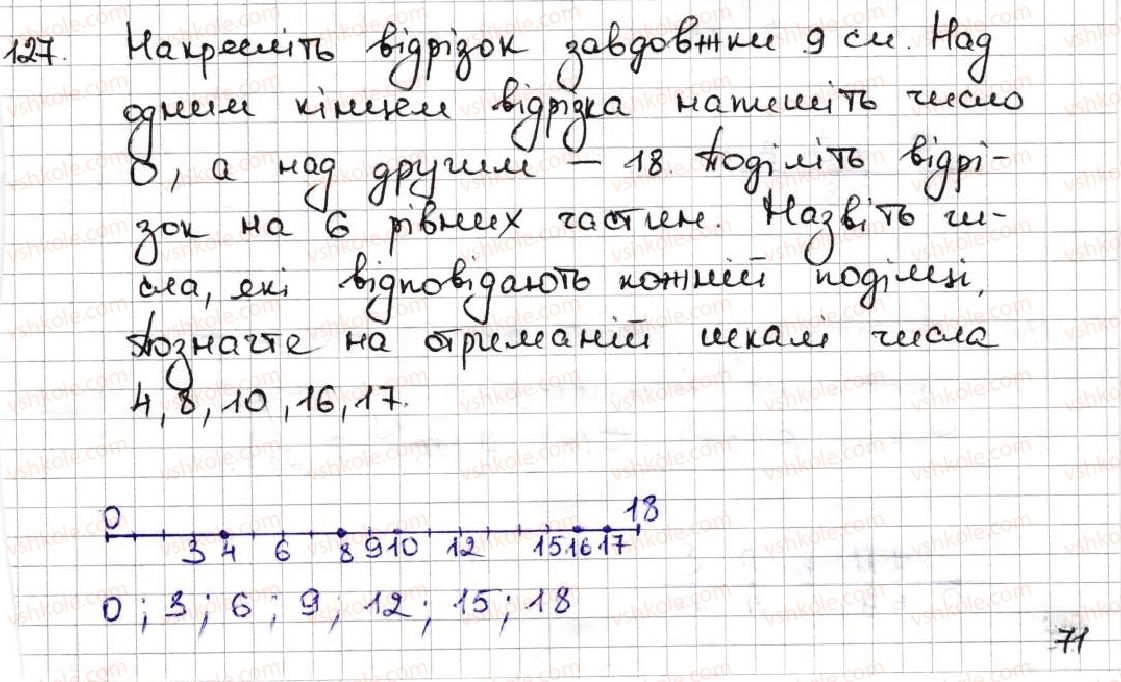 127. Накресліть відрізок завдовжки 9 см. Над
одним кінцем відрізка напишіть число
0, а над другим – 18. Поділіть відрі-
зок на 6 рівних частин. Назвіть чи-
сла, які відповідають кожній поділці,
Позначте на отриманій шкалі числа
4, 8, 10, 16, 17.
0 18
3 4 6 8 9 10 12 15 16 17
0; 3; 6; 9; 12; 15; 18
71
vshkole.com